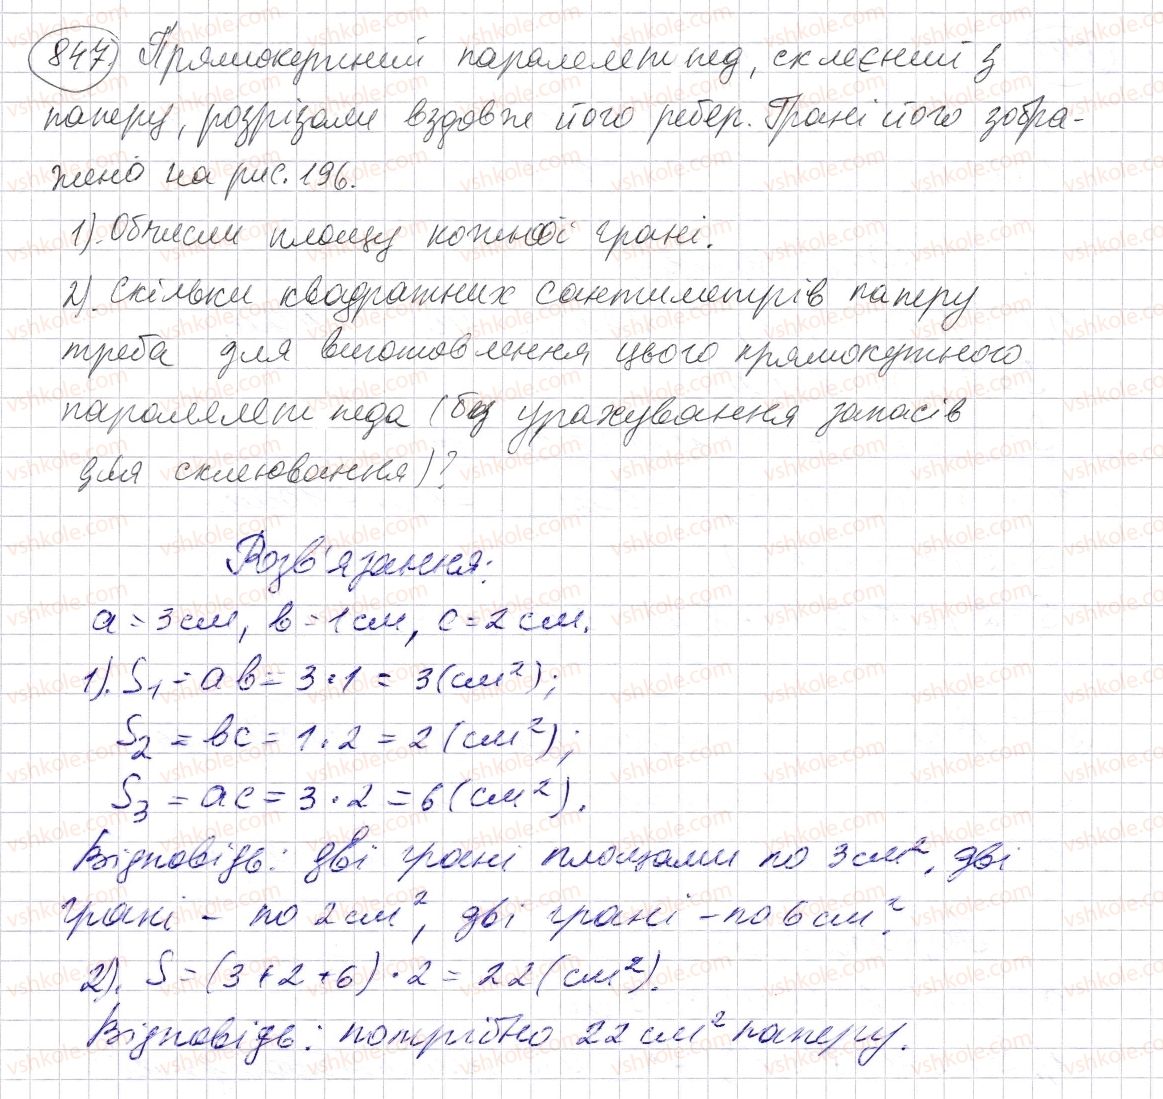 847) Прямокутний паралелепіпед, склеєний з
паперу, розрізали вздовж його ребер. Грані його зобра-
жено на рис. 196.
1). Обчисли площу кожної грані.
2). Скільки квадратних сантиметрів паперу
треба для виготовлення цього прямокутного
паралелепіпеда (без урахування запасів
для склеювання)?
Розв'язання:
a = 3 см, b = 1 см, c = 2 см.
1). S₁ = ab = 3·1 = 3 (см²);
S₂ = bc = 1·2 = 2 (см²);
S₃ = ac = 3·2 = 6 (см²).
Відповідь: дві грані площами по 3 см², дві
грані – по 2 см², дві грані – по 6 см².
2). S = (3+2+6)·2 = 22 (см²).
Відповідь: потрібно 22 см² паперу.